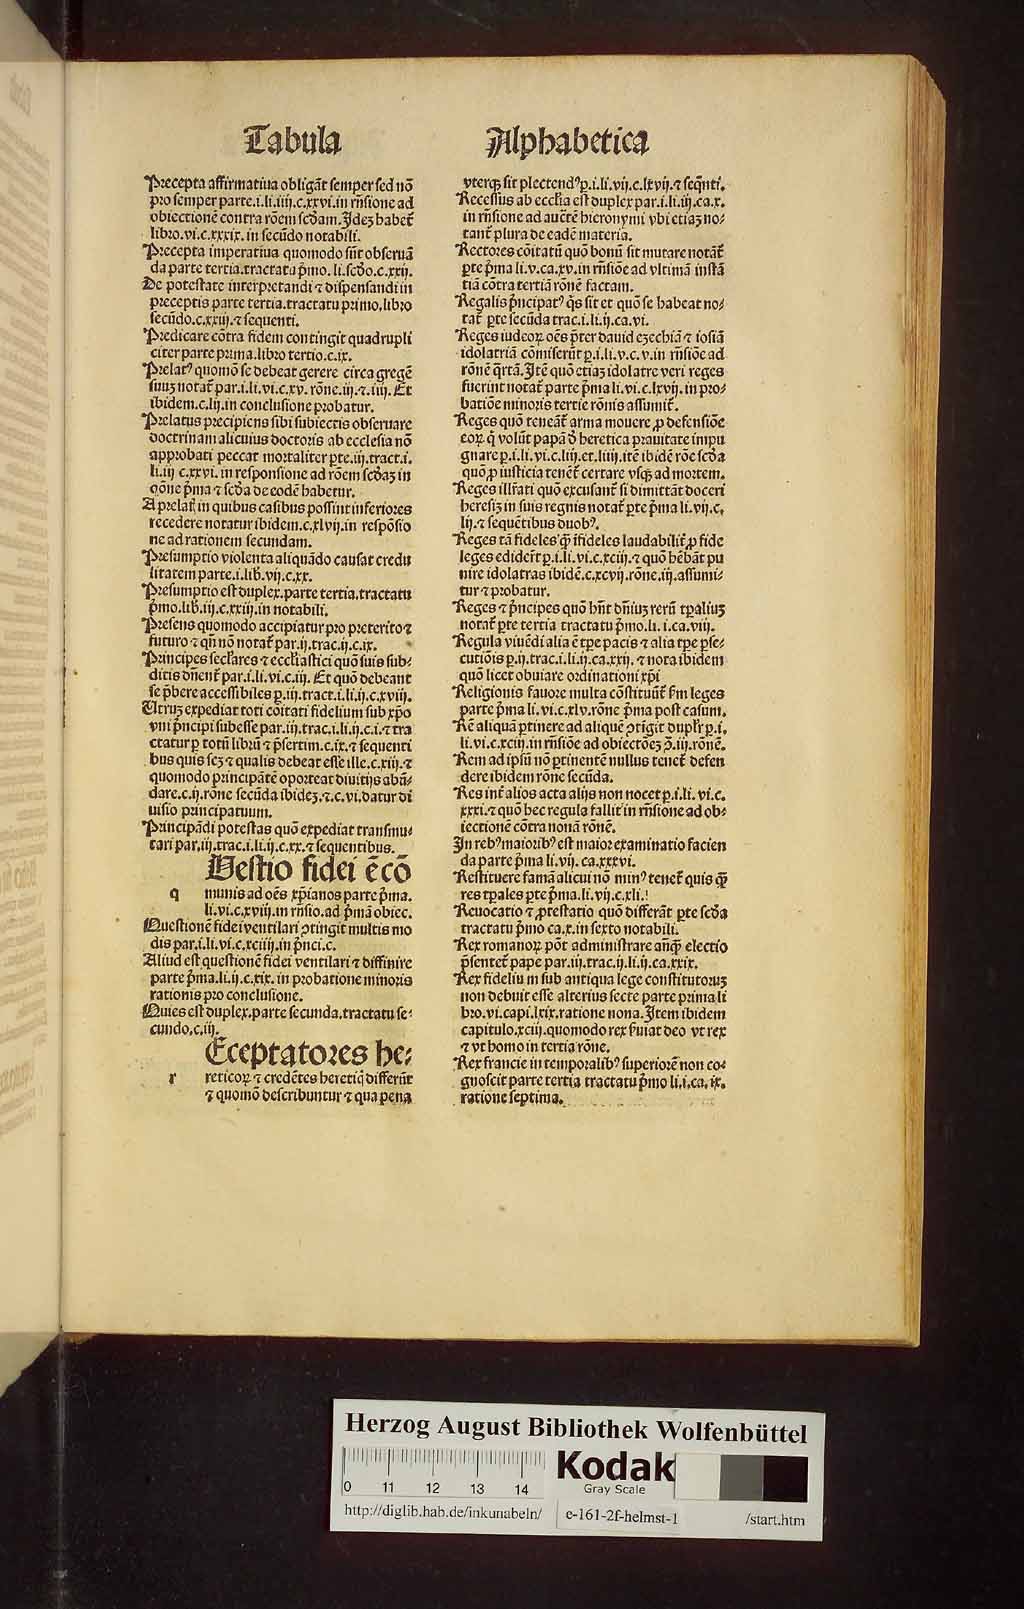 Tabula
Precepta affirmatiua obligāt semper sed nō
pro semper parte.i.li.iiij.c.xxvi.in rn̄sione ad
obiectionē contra rōem scđam. Idez habet̄
libro.vi.c.xxxix.in secūdo notabili.
Precepta imperatiua quomodo sūt obseruā
da parte tertia.tractatu p̄mo.li.scđo.c.xxij.
De potestate interpretandi ⁊ dispensandi in
preceptis parte tertia.tractatu primo.libro
secūdo.c.xxiij.⁊ sequenti.
Predicare cōtra fidem contingit quadrupli
citer parte prima.libro tertio.c.ix.
Prelatꝰ quomō se debeat gerere circa gregē
suuz notat̄ par.i.li.vi.c.xv.rōne.iij.⁊.iiij. Et
ibidem.c.lij.in conclusione probatur.
Prelatus precipiens sibi subiectis obseruare
doctrinam alicuius doctoris ab ecclesia nō
approbati peccat mortaliter ꝑte.iij.tract.i.
li.iij c.xxvi.in responsione ad rōem scđaz in
q̄one p̄ma ⁊ scđa de eodē habetur.
A prelat̄ in quibus casibus possint inferiores
recedere notatur ibidem.c.xlvij.in respōsio
ne ad rationem secundam.
Presumptio violenta aliquādo causat credu
litatem parte.i.lib̄.vij.c.xx.
Presumptio est duplex.parte tertia.tractatu
p̄mo.lib̄.iij.c.xxiij.in notabili.
Presens quomodo accipiatur pro preterito ⁊
futuro ⁊ qn̄ nō notat̄ par.ij.trac.ij.c.ix.
Principes seclares ⁊ eccl̄iastici quō suis sub⸗
ditis dn̄ent̄ par.i.li.vi.c.iij. Et quō debeant
se p̄bere accessibiles ꝑ.iij.tract.i.li.ij.c.xviij.
Utruz expediat toti cōitati fidelium sub xp̄o
vni p̄ncipi subesse par.iij.trac.i.li.ij.c.i.⁊ tra
ctatur ꝑ totū librū ⁊ p̄sertim.c.ix.⁊ sequenti
bus quis scz ⁊ qualis debeat esse ille.c.xiij.⁊
quomodo principātē oporteat diuitijs abū⸗
dare.c.ij.rōne secūda ibidez.⁊.c.vi.datur di
uisio principatuum.
Principādi potestas quō expediat transmu⸗
tari par.iij.trac.i.li.ij.c.xx.⁊ sequentibus.
Uestio fidei ē cō
q munis ad oēs xp̄ianos parte p̄ma.
li.vi.c.xviij.in rn̄sio.ad p̄mā obiec.
Questionē fidei ventilari ↄtingit multis mo
dis par.i.li.vi.c.xciiij.in p̄nci.c.
Aliud est questionē fidei ventilari ⁊ diffinire
parte p̄ma.li.ij.c.xix.in probatione minoris
rationis pro conclusione.
Quies est duplex.parte secunda.tractatu se⸗
cundo.c.iij.
Eceptatores he⸗
r reticoꝝ ⁊ credētes heretiꝗ differūt
⁊ quomō describuntur ⁊ qua pena
Alphabetica
vterqꝫ sit plectendꝰ ꝑ.i.li.vij.c.lxvij.⁊ seqn̄ti.
Recessus ab eccl̄ia est duplex par.i.li.iij.ca.x.
in rn̄sione ad auctē hieronymi vbi etiaz no⸗
tant̄ plura de eadē materia.
Rectores cōitatū quō bonū sit mutare notat̄
ꝑte p̄ma li.v.ca.xv.in rn̄siōe ad vltimā instā
tiā cōtra tertiā rōnē factam.
Regalis p̄ncipatꝰ q̄s sit et quō se habeat no⸗
tat̄ ꝑte secūda trac.i.li.ij.ca.vi.
Reges iudeoꝝ oēs p̄ter dauid ezechiā ⁊ iosiā
idolatriā cōmiserūt ꝑ.i.li.v.c.v.in rn̄siōe ad
rōnē q̄rtā. Itē quō etiaz idolatre veri reges
fuerint notat̄ parte p̄ma li.vi.c.lxvij.in pro⸗
batiōe minoris tertie rōnis assumit̄.
Reges quō teneāt̄ arma mouere ꝓ defensiōe
eoꝝ q̄ volūt papā đ heretica prauitate impu
gnare ꝑ.i.li.vi.c.liij.et.liiij.itē ibidē rōe scđa
quō ꝓ iusticia tenet̄ certare vsqꝫ ad mortem.
Reges illr̄ati quō excusant̄ si dimittāt doceri
heresiz in suis regnis notat̄ ꝑte p̄ma li.vij.c.
lij.⁊ sequētibus duobꝰ.
Reges tā fideles qꝫ īfideles laudabilit̄ ꝓ fide
leges edider̄t ꝑ.i.li.vi.c.xciij.⁊ quō hēbāt pu
nire idolatras ibidē.c.xcvij.rōne.iij.assumi⸗
tur ⁊ probatur.
Reges ⁊ p̄ncipes quō hn̄t dn̄iuz rerū tp̄aliuz
notat̄ ꝑte tertia tractatu p̄mo.li.i.ca.viij.
Regula viuēdi alia ē tp̄e pacis ⁊ alia tp̄e ꝑse⸗
cutiōis ꝑ.ij.trac.i.li.ij.ca.xxij.⁊ nota ibidem
quō licet obuiare ordinationi xp̄i
Religionis fauore multa cōstituūt̄ sm̄ leges
parte p̄ma li.vi.c.xlv.rōne p̄ma post casum.
Rē aliquā ꝑtinere ad aliquē ↄtigit duplr̄ ꝑ.i.
li.vi.c.xciij.in rn̄siōe ad obiectōez ꝯ.iij.rōnē.
Rem ad ipsū nō ꝑtinentē nullus tenet̄ defen
dere ibidem rōne secūda.
Res int̄ alios acta alijs non nocet ꝑ.i.li.vi.c.
xxxi.⁊ quō hec regula fallit̄ in rn̄sione ad ob⸗
iectionē cōtra nonā rōnē.
In rebꝰ maioribꝰ est maior examinatio facien
da parte p̄ma li.vij.ca.xxxvi.
Restituere famā alicui nō minꝰ tenet̄ quis qꝫ
res tp̄ales ꝑte p̄ma.li.vij.c.xli.
Reuocatio ⁊ ꝓtestatio quō differāt ꝑte scđa
tractatu p̄mo ca.x.in sexto notabili.
Rex romanoꝝ pōt administrare an̄qꝫ electio
p̄sentet̄ pape par.iij.trac.ij.li.ij.ca.xxix.
Rex fideliu m sub antiqua lege constitutoruz
non debuit esse alterius secte parte prima li
bro.vi.capi.lxix.ratione nona. Item ibidem
capitulo.xciij.quomodo rex ẜuiat deo vt rex
⁊ vt homo in tertia rōne.
Rex francie in temporalibꝰ superiorē non co⸗
gnoscit parte tertia tractatu p̄mo li.i.ca.ix.
ratione septima.
Herzog August Bibliothek Wolfenbüttel
0 11 12 13 14
Kodak
Gray Scale
http://diglib.hab.de/inkunabeln/ e-161-2f-helmst-1 /start.htm